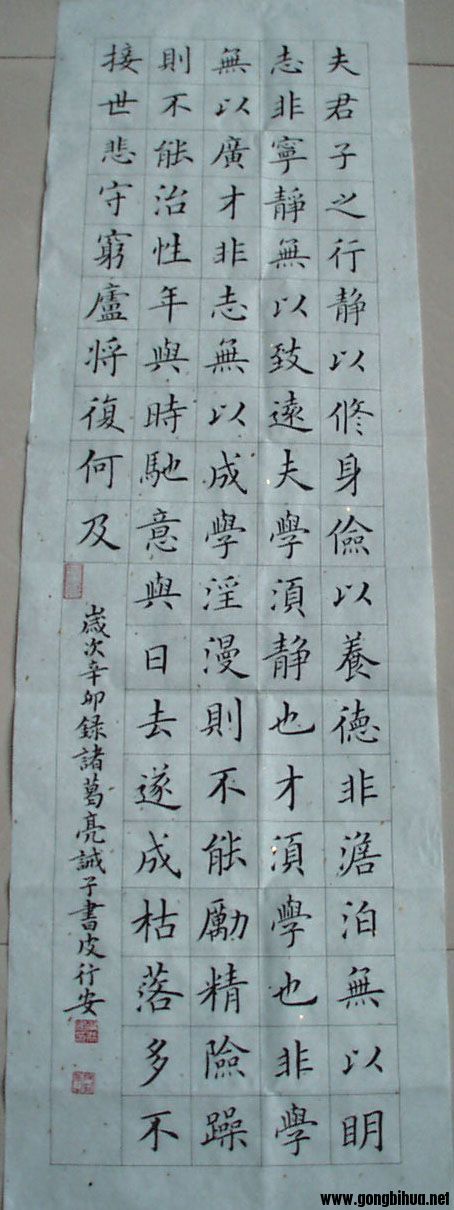 夫君子之行静以修身儉以養德非澹泊無以明
志非寧靜無以致遠夫學須静也才須學也非學
無以廣才非志無以成學淫漫則不能勵精險躁
則不能治性年與時馳意與日去遂成枯落多不
接世悲守窮廬将復何及
嵗次辛卯録諸葛亮誡子書皮行安
www.gongbihua.net